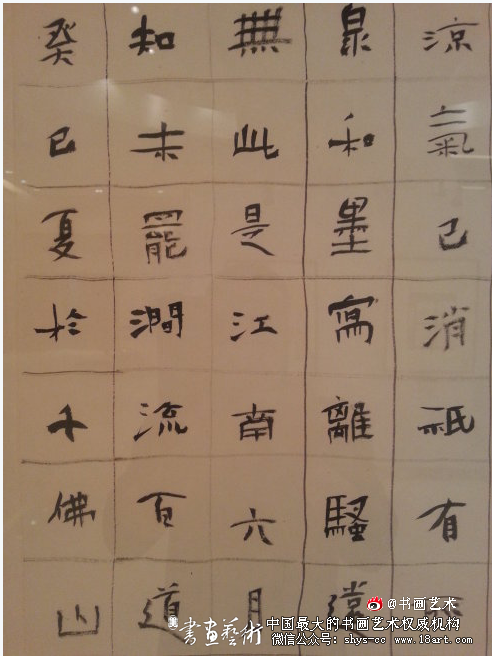 涼氣已消祇有
泉和墨寫離騷
無此是江南六月
知未罷澗流百道
癸巳夏於千佛山
@书画艺术
書畫藝術
中国最大的书画艺术权威机构
微信公众号：shys-cc www.18art.com